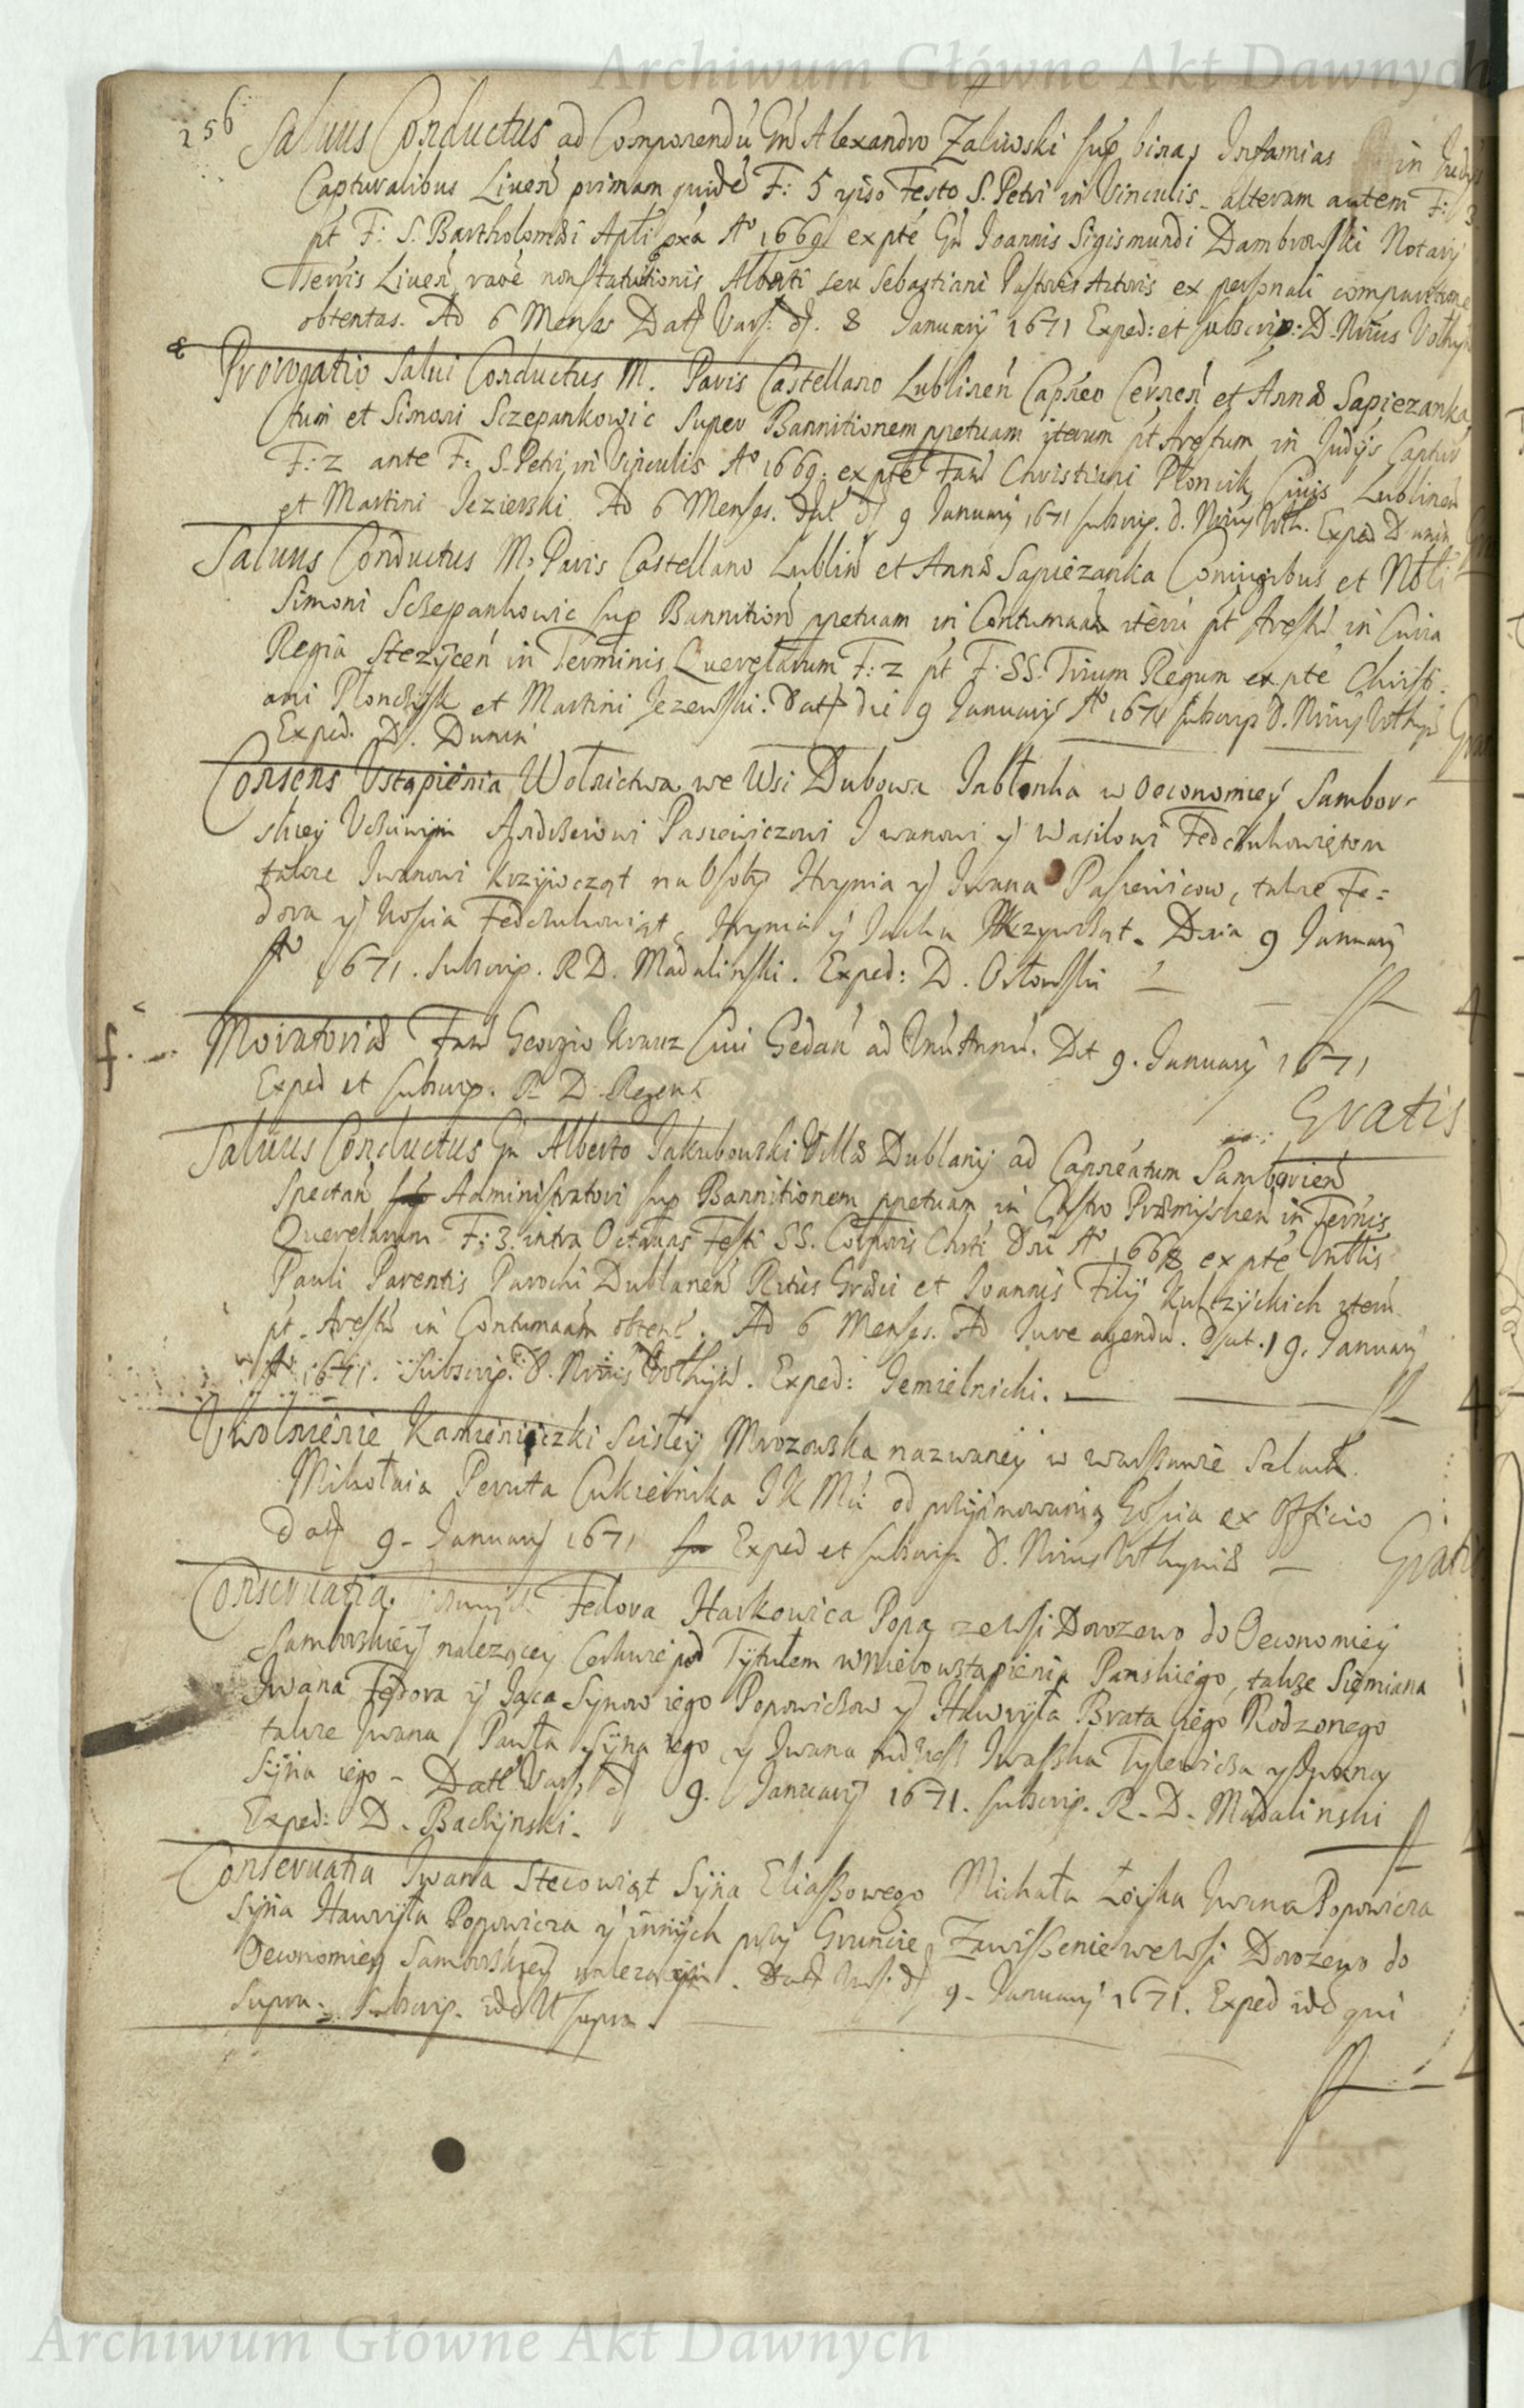 Archiwum Główne Akt Dawnych
256
Saluus Conductus ad Comparendū Gn̄ Alexandro Zaliwski sup binas Infamias in Iudijs
Capturalibus Liuen̄ primam quidē F: 5 ipso Festo S. Petri in Vinculis alteram autem F: 3
pt F: S. Bartholomæi Apli pxa A° 1669 ex pte Gn̄ Ioannis Sigismundi Dambrowski Notarij
Terris Liuen̄ raōe non statuitionis Alberti seu Sebastiani Pastoris Actoris ex personali comparitione
obtentas. Ad 6 Menses Datt Vars: d. 8 January 1671 Exped: et subscrip: D. Nrius Volhyn
Prorogatio Salui Conductus M. Pavis Castellano Lublinen̄ Capneo Cersen̄ et Annæ Sapiezanka
Ctum et Simoni Sczepankowic super Bannitionem ppetuam iterum pt Arestum in Iudijs Captur
F: 2 ante F. S. Petri in Vinculis A° 1669. ex pte Fam Christiani Plonczik Ciuis Lublinen̄
et Martini Jezierski Ad 6 Menses. Dat d 9 January 1671 subscrip. d. Nrius Vol. Exped D unin
Saluus Conductus M. Pavis Castellano Lublin̄ et Annæ Sapiezanka Coniugibus et Nbli
Simoni Sczepankowic sup Bannition̄ ppetuam in Contumaām iterū pt Arest in Curia
Regia Stezycen̄ in Terminis Querelarum F: 2 pt F. SS. Trium Regum ex pte Christi-
ani Plonczyk et Martini Jezewski. Datt die 9 January A° 1671 subscrip D. Nrius Volhyn
Exped. D. Dunin
Consens Vstąpienia Wolnictwa we Wsi Dubowa Jabłonka w Oeconomiey Sambor-
skiey Vcściwym Andrzeiowi Pasiewiczowi Iwanowi y Wasilowi Fedczukowiętom
także Iwanowi Krzywcząt na Osoby Hrynia y Iwana Pasiewicow, także Fe=
dora y Koscia Fedczukowiąt, Hrynia y Iacka Krzywcząt. Dnia 9 January
A° 1671. Subscrip. R D. Madalinski. Exped: D. Ostowski
Moratoriæ Fam Georgio Krauz Ciui Gedan̄ ad Unū Annū. Dat 9. January 1671
Exped et subscrip. R D. Regent
Gratis
Saluus Conductus Gn̄ Alberto Jakubowski Villæ Dublany ad Capneatum Samborien̄
Spectan̄ Administratori sup Bannitionem ppetuam in Castro Præmyslien̄ in Ternis
Querelarum F: 3 intra Octauas Festi SS. Corporis Chrti Dni A° 1668 ex pte Nblis
Pauli Parentis Parochi Dublanen̄ Ritus Græci et Ioannis Filij Kulczyckich iterū
pt Arestū in Contumaām obtent. Ad 6 Menses. Ad Iure agendū. Dat. 19. January
A° 1671. Subscrip. D. Nrius Volhyn̄. Exped: Gemielnicki.
Vwolnienie Kamieniczki Scisłey Mrozowska nazwaney w Warszawie Szlach.
Mikołaia Peruta Cukiernika IK Mci od przyimowania Goscia ex Officio
Datt 9 - January 1671 Exped et subscrip D. Nrius Volhyniæ
Gratis
Conseruatia Fedora Harkowica Popa ze Wsi Dorozewo do Oeconomiey
Samborskiey nalezącey Cerkwie pod Tytułem wniebowstąpienia Panskiego, także Siemiana
Iwana Fedora y Iąca Synow iego Popowiczow y Hawryła Brata iego Rodzonego
takze Iwana Pawła Syna iego y Iwana Iwaszka Tylewicza
Syna iego - Datt Vars d 9. January 1671. Subscrip. R. D. Madalinski
Exped: D. Baczynski.
Conseruatia Iwana Stecowiąt Syna Eliaszowego Michała Łoyka Iwana Popowicza
Syna Hawryła Popowicza y innych przy Gruncie Zawiszenie we Wsi Dorozewo do
Oeconomiey Samborskiey nalezącym. Datt Vars. d 9 - January 1671. Exped idē qui
Supra. Subscrip. idē Ut supra.
Archiwum Główne Akt Dawnych